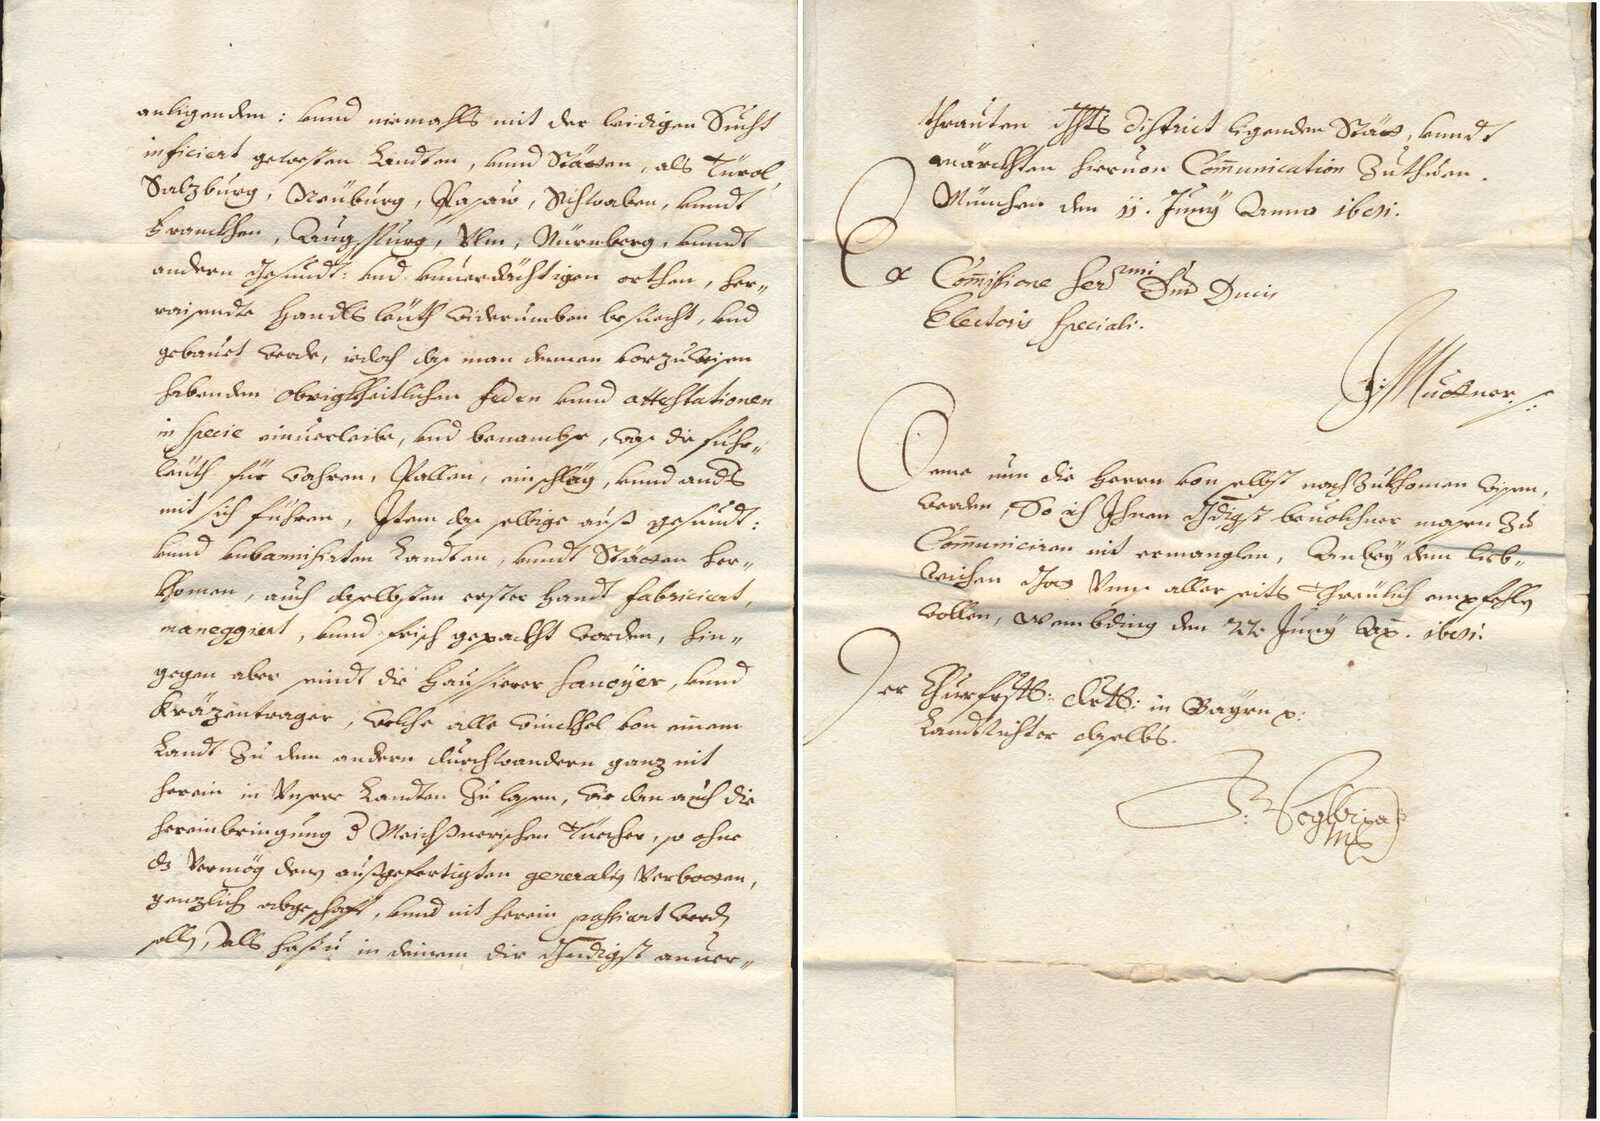 anligenden: vnnd niemahls mit der leidigen Sucht
inficiert gewesten Landten, vnnd Stätten, als Türol,
Salzburg, Neüburg, Passaw, Schwaben, vnndt
Franckhen, Augspurg, Vlm, Nürnberg, vnndt
andern gesundt: vnd vnuerdächtigen orthen, her-
raisendte Handlsleüth widerumben besuecht, vnd
gebauet werde, iedoch das man dennen vorzuweisen
habenden Obrigkheitlichen feden vnnd attestationen
in specie einuerleibe, vnd benambse, was die fuhr-
leüth für wahren, Pallen, einschläg, vnnd anders
mit sich führen, Item das selbige auß gesundt:
vnnd vnbannisirten Landten, vnndt Stätten her-
khomen, auch daselbsten erster Handt fabriciert,
maneggiert, vnnd frisch gepackht worden, hin-
gegen aber seindt die Hausierer Sauoÿer, vnnd
Kräzentrager, welche alle Winckhel von einem
Landt zu dem andern durchwandern ganz nit
herein in Vnsere Landten zu lassen, wie dan auch die
hereinbringung d Meichßnerischen Tüecher, so ohne
dz vermög deren außgefertigten generalien verbotten,
genzlich abgeschafft, vnnd nit herein passiert werden
sollen, als hastu in deinem dir gnedigst anuer-
thrauten Ghts district ligenden Stätt, vnndt
Märckhten hieruon Communication zuthuen.
München den 11. Juny Anno 1681.
Ex Commissione Sermi Dni Ducis
Electoris speciali.
Mückner
Deme nun die Herrn von selbst nachzukhomen wissen,
werden, So ich Ihnen gdigst beuolchner massen zu
Communiciren nit ermanglen, Anbey dem lieb-
reichen Gott Vnns allerseits threülich empfehlen
wollen, Wembding den 22. Juny Ao. 1681.
Der Churfrtl: Drtl: in Bayrn p:
Landtrichter daselbs.